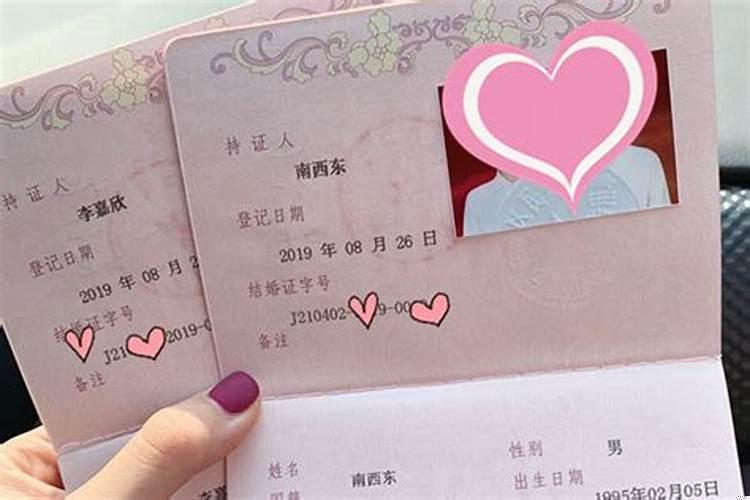 持证人
南西东
登记日期
2019 年 08 月 26 日
结婚证字号
J210402- 9-00
备注
姓名
南西东
性别
男
出生日期
1995年02月05日
持证人
李嘉欣
登记日期
2019 年 08 月 2
结婚证字号
J21 2019-0
备注
李嘉